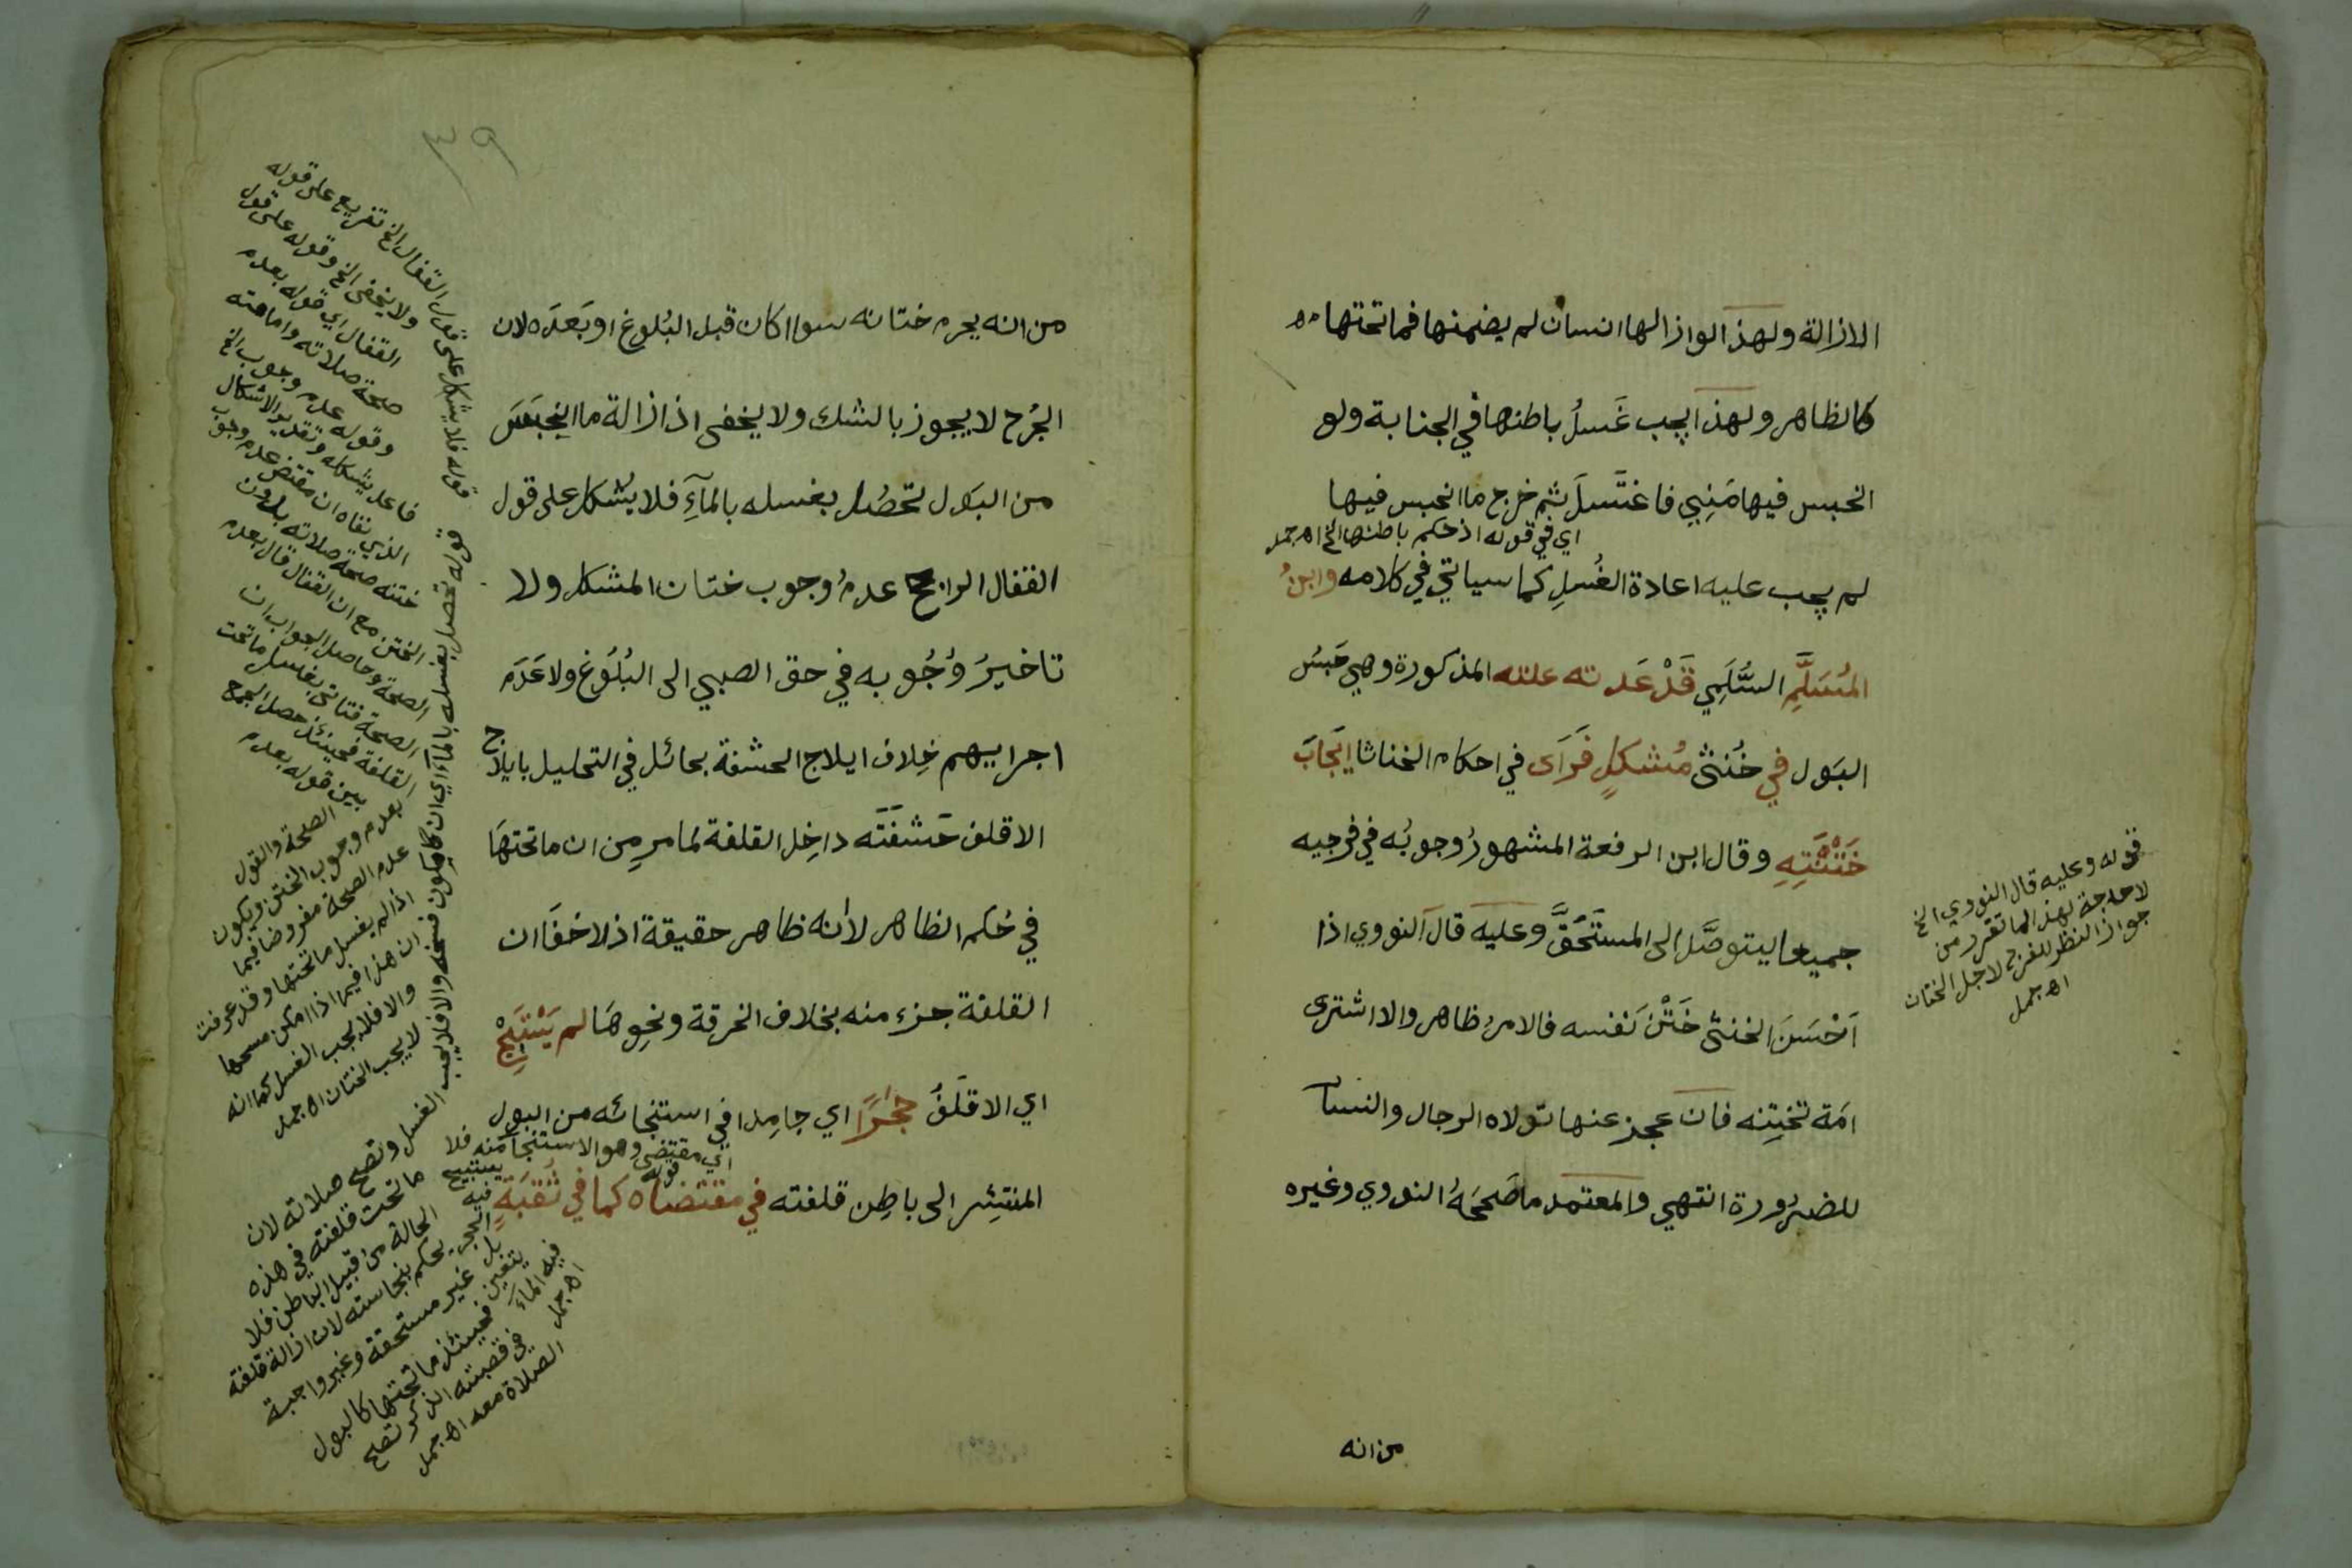 الازالة ولهذا لو ازالها انسان لم يضمنها فما تحتها
كالظاهر ولهذا يجب غَسلُ باطنها في الجنابة ولو
انحبس فيها مَنِيٌ فاغتَسلَ ثم خرج ما انحبس فيها
اي في قوله اذ حكم باطنها الخ اه جمل
لم يجب عليه اعادة الغُسلِ كما سياتي في كلامه وابنُ
المُسَلَّمِ السُّلَمِي قَدْ عَدته علته المذكورة وهي حَبسُ
البَول في خُنثى مُشكلٍ فَرَآى في احكام الخناثا ايَجابَ
خَتْنَتِهِ وقال ابن الرفعة المشهورُ وجوبُه في فرجيه
جميعا ليتوصَّل الى المستَحَقَّ وعليه قال النووي اذا
اَحْسَنَ الخنثى خَتْنَ نَفسه فالامرُ ظاهر والا اشترى
امَة تختِنه فان عجز عنها تولاه الرجال والنسآ
للضرُورة انتهي والمعتمد ما صَححَهُ النووي وغيره
قوله وعليه قال النووي الخ
لا حاجة لهذا لما تقرر من
جواز النظر للفرج لاجل الختان
اه جمل
من انه
٣٩
من انه يحرم ختانه سوا اكان قبل البُلوغ او بَعدَه لان
الجُرح لا يجوز بالشك ولا يخفى اذ ازالة ما اينجبَسَ
من البَول تحصُل بغسله بالمآءِ فلا يُشكل على قول
القفال الراجح عدمُ وجوب ختان المشكل ولا
تاخيرُ وُجُوبه في حق الصبي الى البُلُوغ ولا عَدَم
اجراييهم خِلاف ايلاج الحشفة بحائل في التحليل بايلاج
الاقلف حَشفَتَه داخِل القلفة لمامر مِن ان ما تحتهَا
في حُكم الظاهر لأنه ظاهر حقيقة اذ لا خفَا ان
القلفة جزء منه بخلاف الخرقة ونحوِهَا لم يَسْتَنْجِ
اي الاقلَفُ حجَرًا اي جامِدا في استنجائه من البول
اي مقتضى قوله
وهو الاستنجآ منه فلا يستبيح
المنتشِر الى باطِن قلفته في مقتضاه كما في ثُقبَةٍ
قوله فلا يشكل على قول القفال الخ تفريع على قوله
ولا يخفى الخ وقوله على قول
القفال اي قوله بعدم
صحة صلاته وامامته
وقوله عدم وجوب الخ
فاعل يشكل وتقدير الاشكال
الذي نفاه ان مقتضى عدم وجوب
ختنه صحة صلاته بدون
الختن مع ان القفال قال بعدم
الصحة وحاصل الجواب ان
الصحة فتاتى بغسل ما تحت
القلفة فحينئذ حصل الجمع
بين قوله بعدم
الصحة والقول
بعدم وجوب الختن ويكون
عدم الصحة مفروضا فيما
اذا لم يغسل ما تحتها وقد عرفت
ان هذا فيما اذا امكن مسحها
والا فلا يجب الغسل كما انه
لا يجب الختان اه جمل
قوله تحصل بغسله بالمآء اي ان كان يكون فسخه والا فلا يجب الغسل وتصح صلاته لان
ما تحت قلفته في هذه
الحالة من قبيل الباطن فلا
يحكم بنجاسته لان ازالة قلفته
غير مستحقة وغير واجبة
فحينئذ ما تحتها كالبول
في قصبته الذكر تصح
الصلاة معه اه جمل
فيه الحجر
بل يتعين
فيه المآء
اه جمل